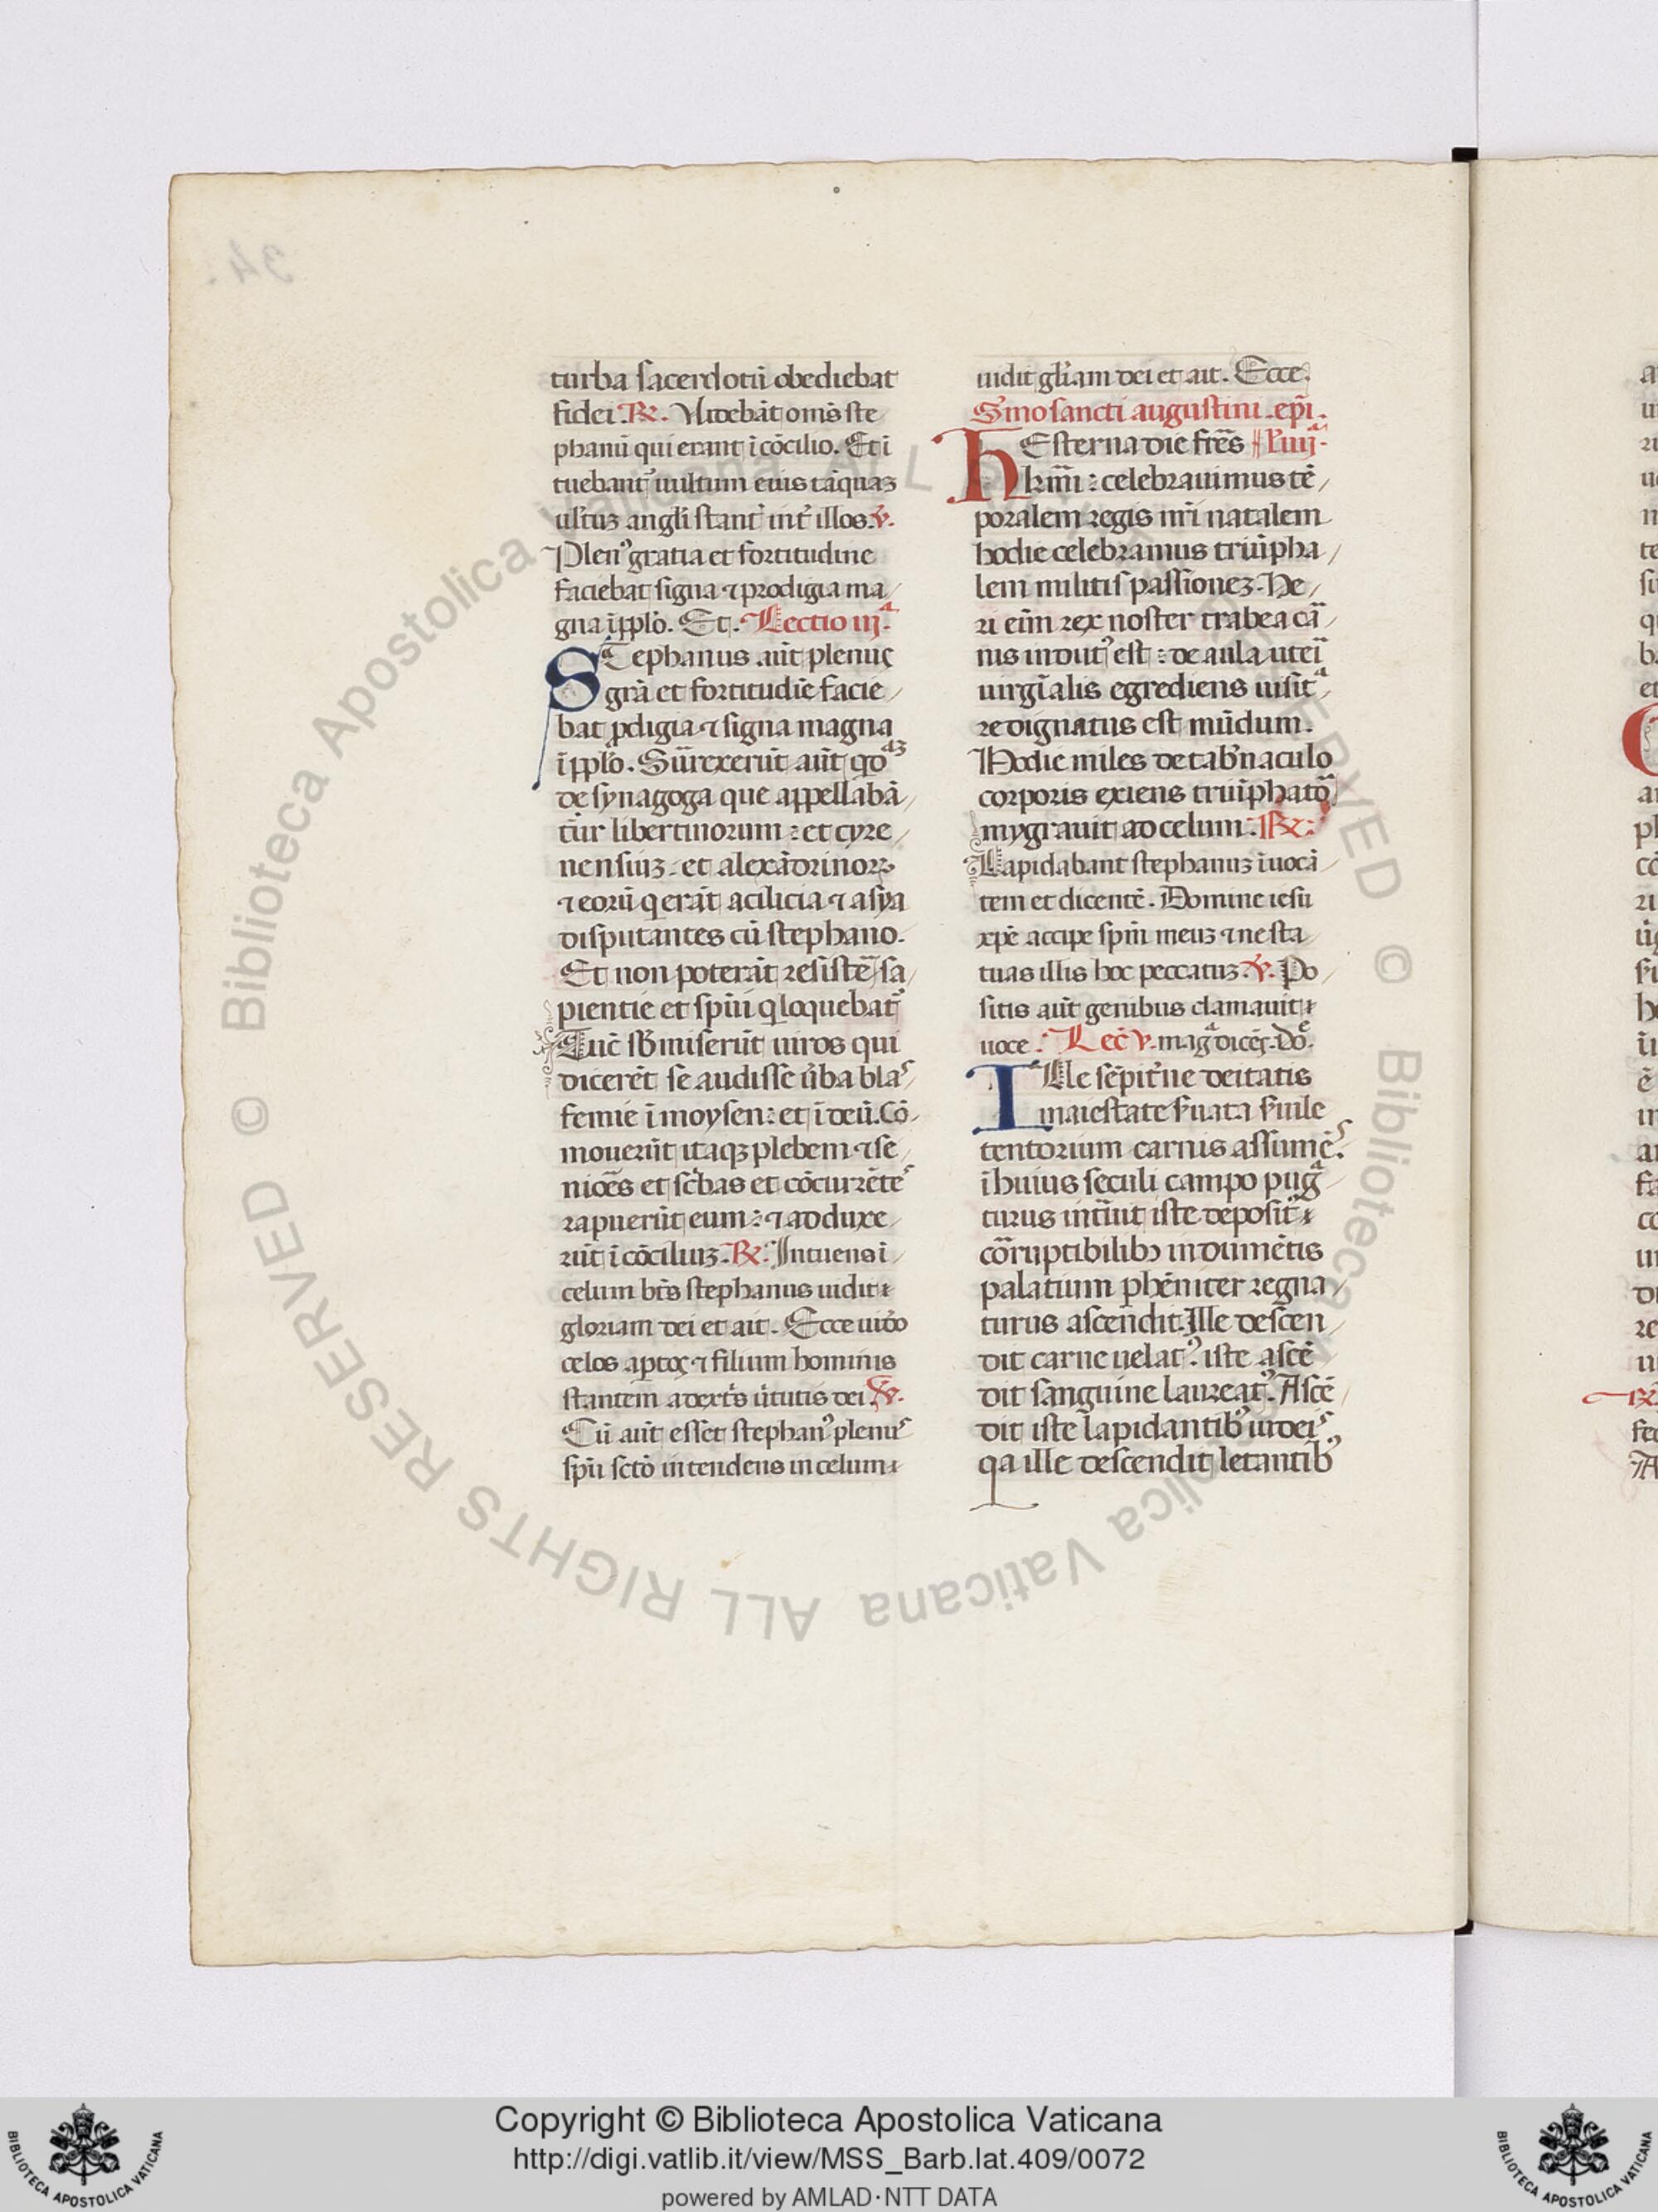 turba sacerdotū obediebat
fidei. ℟. Uidebāt om̄s ste
phanū qui erant ī cōcilio. Et ī
tuebant᷑ uultum eius tāquaꝫ
uultuꝫ angłi stant᷑ int᷑ illos. ℣.
Plen⁹ gratia et fortitudine
faciebat signa ⁊ prodigia ma
gna ī pplo. Et. Lectio iijᵃ
STephanus aūt plenus
grā et fortitudīe facie
bat ꝓdigia ⁊ signa magna
ī pplo. Surrexerūt aūt qᵒdaꝫ
de synagoga que appellabā
tur libertinorum: et cyre
nensiuꝫ. et alexādrinoꝝ
⁊ eorū q erāt a cilicia ⁊ asya
disputantes cū stephano.
Et non poterāt resistē sa
pientie et spūi q loquebat᷑
Tūc sb̄miserūt uiros qui
dicerēt se audisse ūba blas
femie ī moysen: et ī deū. Cō
mouerūt itaqꝫ plebem ⁊ se
niōes et sc̄bas et cōcurrētes
rapuerūt eum: ⁊ adduxe
rūt ī cōciliuꝫ. ℟. Intuens ī
celum bt̄s stephanus uidit
gloriam dei et ait. Ecce uideo
celos aptos ⁊ filium hominis
stantem a dext̄s ūtutis dei. ℣.
Cū aūt esset stephan⁹ plenus
spū sctō intendens in celum
uidit głiam dei et ait. Ecce.
Smo sancti augustini. ep̄i.
HEsterna die fr̄es ł. iiijᵃ.
kr̄mi: celebrauimus tē
poralem regis nr̄i natalem
hodie celebramus triūpha
lem militis passioneꝫ. He
ri eīm rex noster trabea cār
nis indut⁹ est: de aula uteri
uirgīalis egrediens uisita
re dignatus est mūdum.
Hodie miles de tab̄naculo
corporis exiens triūphator
mygrauit ad celum. ℟.
Lapidabant stephanuꝫ īuocā
tem et dicentē. Domine iesu
xp̄e accipe spm̄ meuꝫ ⁊ ne sta
tuas illis hoc peccatuꝫ. ℣. Po
sitis aūt genibus clamauit
uoce. Lec̄ v. magᵃ dices. Do.
ILle sēpit̄ne deitatis
maiestate s̄uata s̄uile
tentorium carnis assumēs
ī huius seculi campo pugᵃ
turus int̄uit iste depositis
cōrruptibilibꝫ indumētis
palatium phēniter regna
turus ascendit. Ille descen
dit carne uelat⁹. iste ascē
dit sanguine laureat⁹. Ascē
dit iste lapidantib⁹ iudeis
qa ille descendit letantib⁹
Copyright © Biblioteca Apostolica Vaticana
http://digi.vatlib.it/view/MSS_Barb.lat.409/0072
powered by AMLAD·NTT DATA